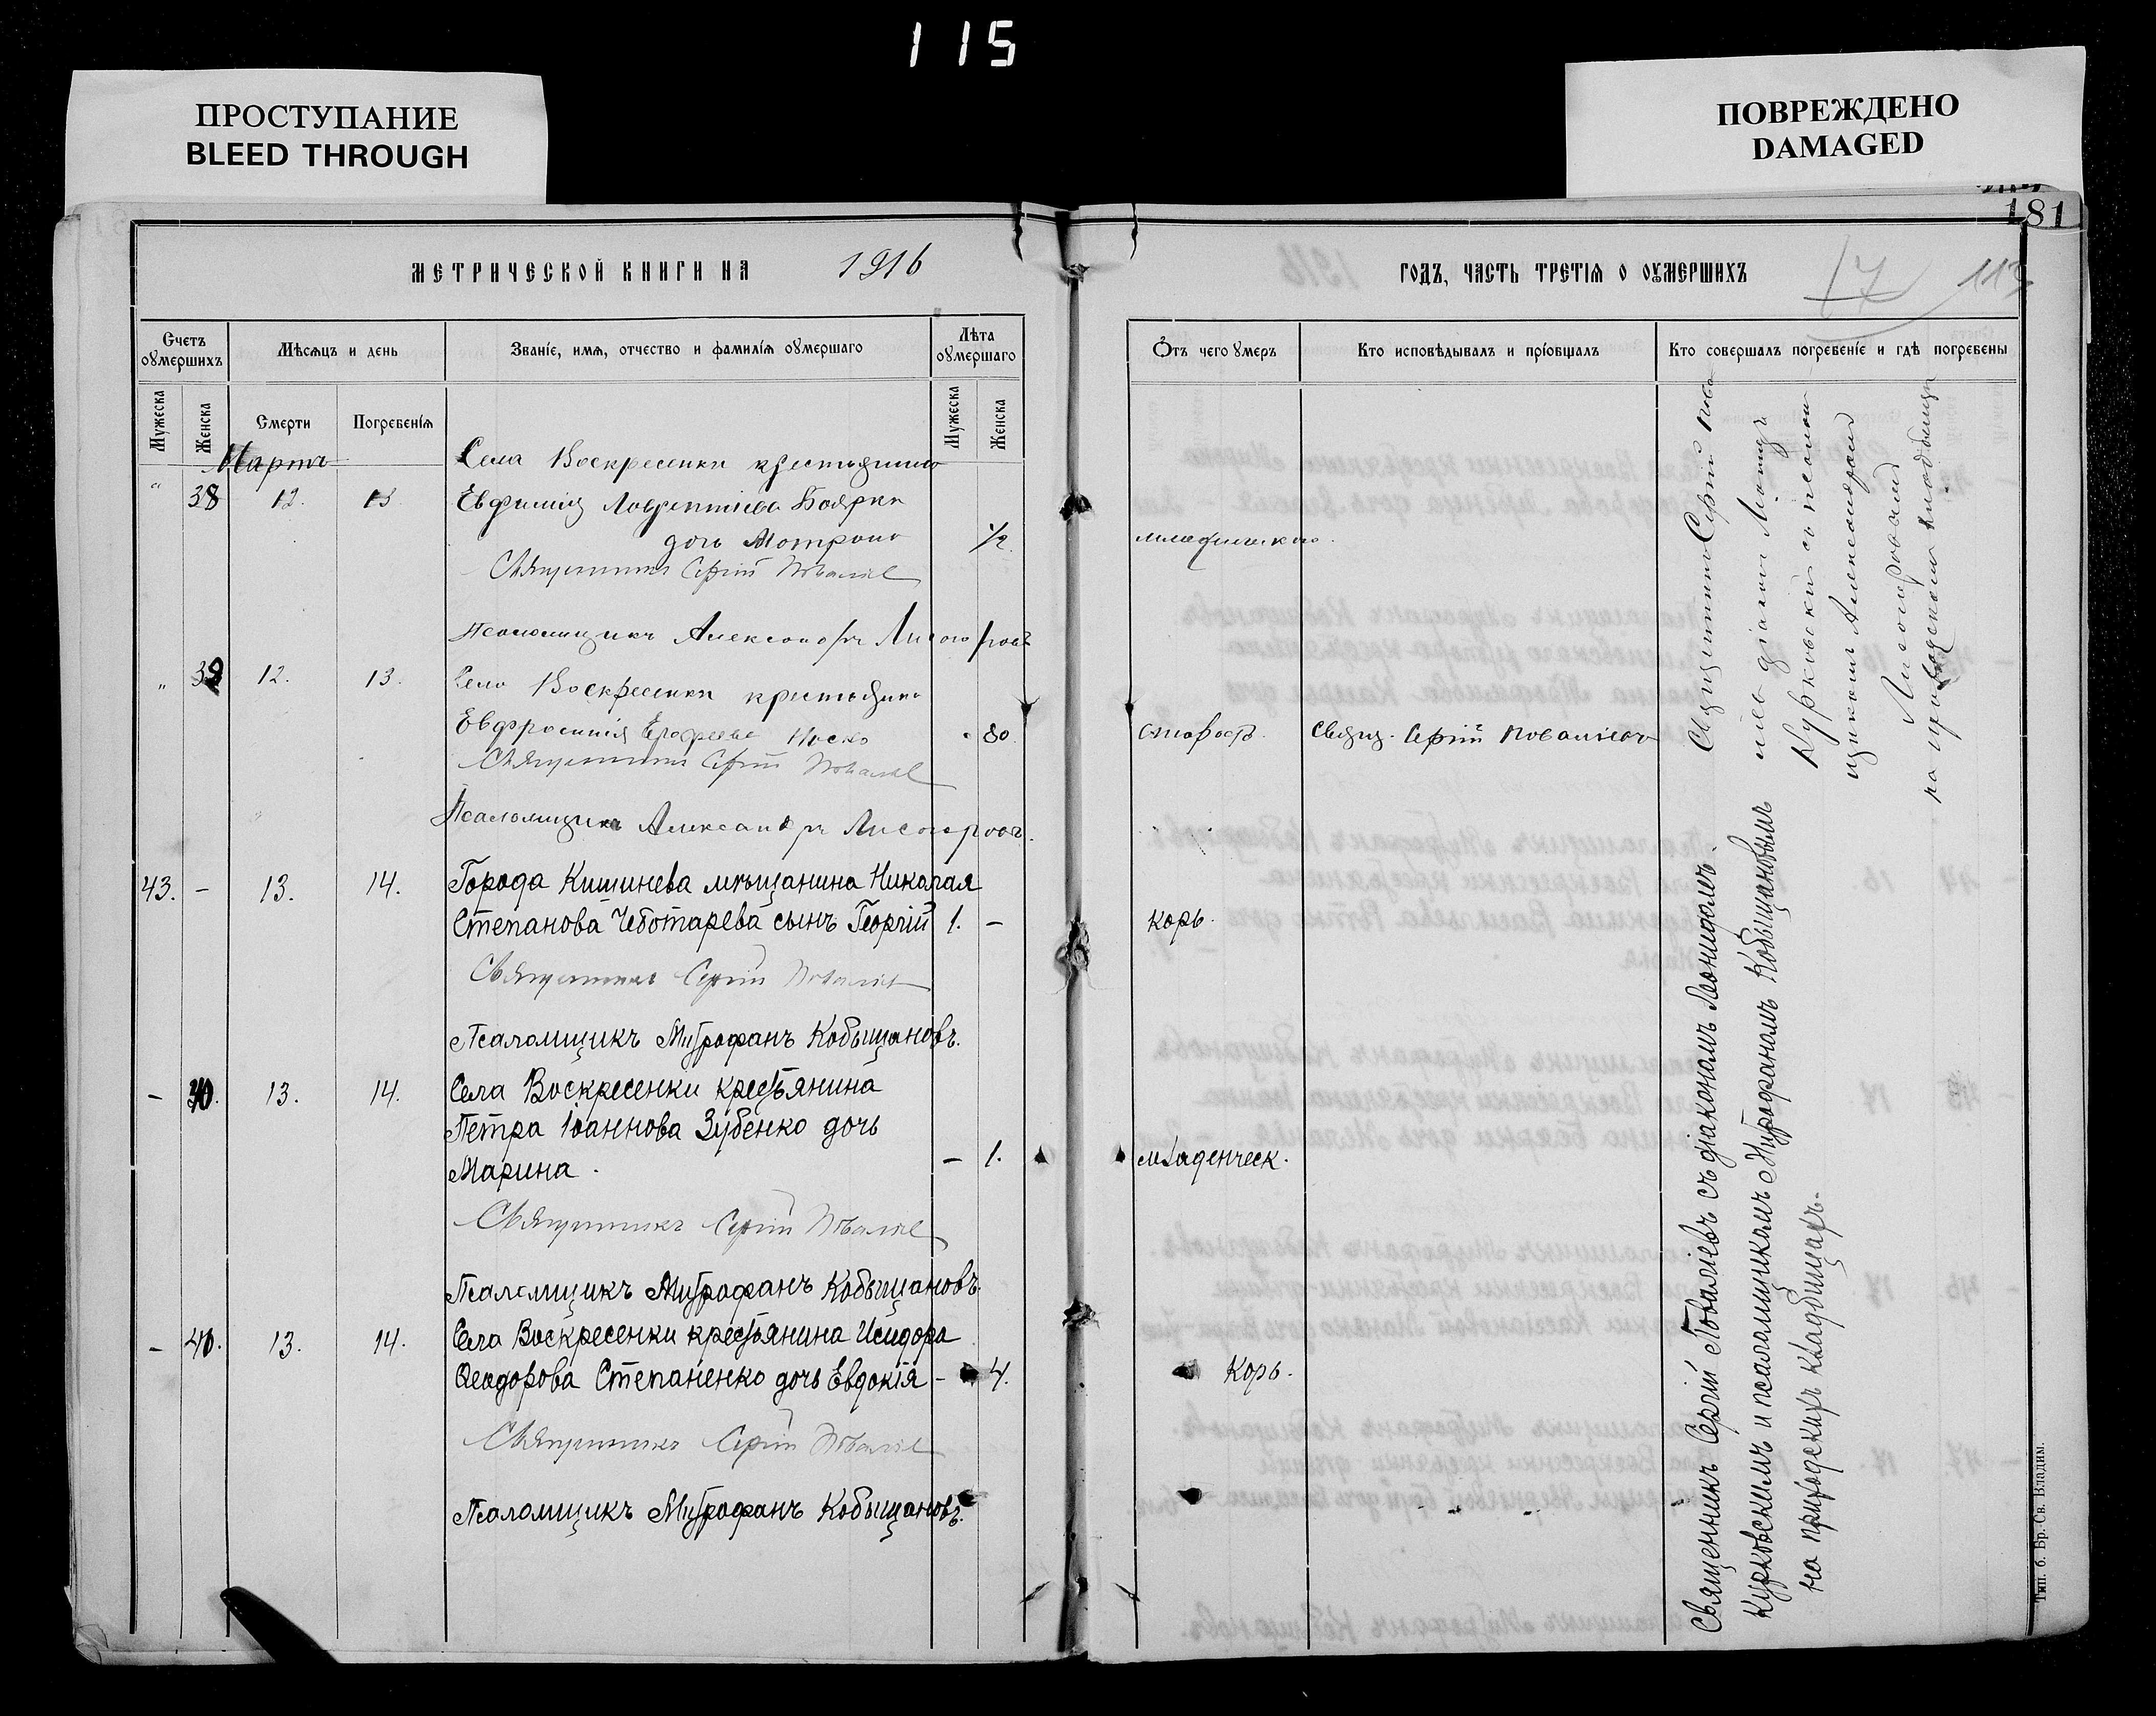 115
ПРОСТУПАНИЕ
BLEED THROUGH
ПОВРЕЖДЕНО
DAMAGED
181
МЕТРИЧЕСКОЙ КНИГИ НА 1916
ГОДЪ, ЧАСТЬ ТРЕТІЯ О ОУМЕРШИХЪ
17 113
Счетъ оумершихъ
Мѣсяцъ и день
Званіе, имя, отчество и фамилія оумершаго
Лѣта оумершаго
Отъ чего оумеръ
Кто исповѣдывалъ и пріобщалъ
Кто совершалъ погребеніе и гдѣ погребены
Мужеска
Женска
Смерти
Погребенія
Мужеска
Женска
Мартъ
Села Воскресенки крестьянина
" 38 12. 13. Евфимія Лаврентіева Боярки
дочь Матрона 1/2. младенческ.
Священникъ Сергій Поваліевъ
Псаломщикъ Александръ Лисогоровъ
" 39 12. 13. Села Воскресенки крестьянка
Евфросинія Ерофеева Носко 80 старость. Свящ. Сергій Поваліевъ
Священникъ Сергій Поваліевъ
Псаломщикъ Александръ Лисогоровъ.
43. – 13. 14. Города Кишинева мѣщанина Николая
Степанова Чеботарева сынъ Георгій 1. – корь.
Священникъ Сергій Поваліевъ
Псаломщикъ Митрофанъ Кобыщановъ.
– 40. 13. 14. Села Воскресенки крестьянина
Петра Іоаннова Зубенко дочь
Марина. – 1. младенческ.
Священникъ Сергій Поваліевъ
Псаломщикъ Митрофанъ Кобыщановъ.
– 40. 13. 14. Села Воскресенки крестьянина Исидора
Ѳеодорова Степаненко дочь Евдокія – 4. Корь.
Священникъ Сергій Поваліевъ
Псаломщикъ Митрофанъ Кобыщановъ.
Священникъ Сергій Пова
ліевъ діакон Леонидъ
Курковскій съ псалом
щикомъ Александромъ
Лисогоровымъ
на приходскомъ кладбищѣ
Священникъ Сергій Поваліевъ съ діакономъ Леонидомъ
Курковскимъ и псаломщикомъ Митрофаномъ Кобыщановымъ
на приходскихъ кладбищахъ.
Тип. б. Бр. Св. Владим.